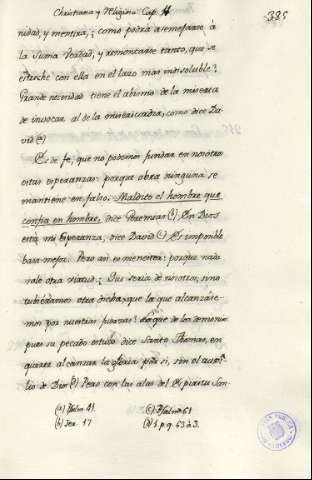 Christiana y Religiosa Cap. 4 335
nidad, y mentira, ¿como podrá asemejarse á
la Suma Verdad, y remontarse tanto, que se
estreche con ella en el lazo mas indisoluble?
Grande necesidad tiene el abismo de la miseria
de invocar al de la misericordia, como dice Da-
vid (a)
Es de fe, que no podemos fundar en nosotros
estas esperanzas: porque obra ninguna se
mantiene en falso: Maldito el hombre que
confia en hombre, dice Jeremias (b). En Dios
está mi Esperanza, dice David (c) Es imposible
basa mejor. Pero asi es menester: porque nada
vale otra virtud; Que seria de nosotros, si no
tubiesemos otra dicha, que la que alcanzáse-
mos por nuestras fuerzas? La que de los demonios
pues su pecado estubo dice Santo Thomas, en
querer alcanzar la gloria por si, sin el auxi-
lio de Dios (d) Pero con las alas del Espiritu San-
(a) Psalm 41. (c) Psalm 61
(b) Jer. 17 (d) 1 p. q. 63 a 3.